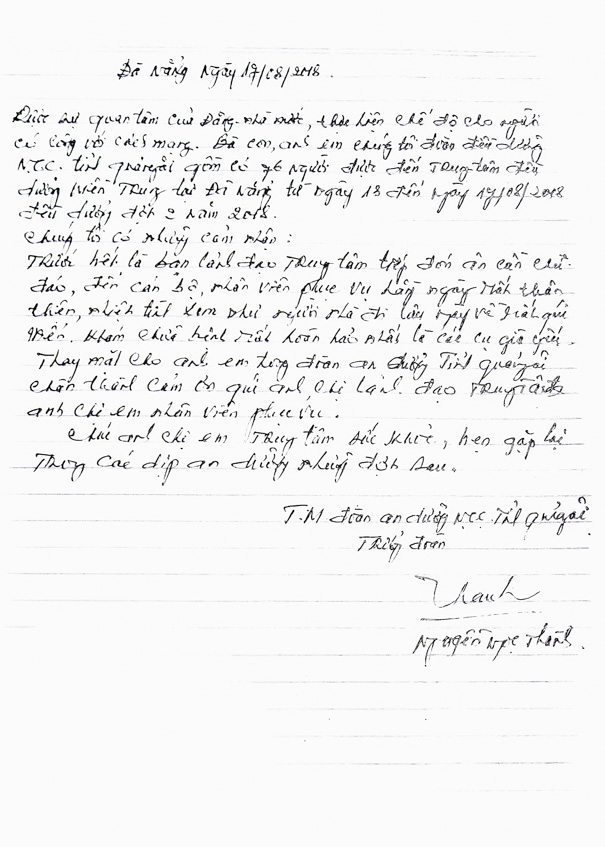 Đà Nẵng Ngày 17/08/2018.
Được sự quan tâm của Đảng nhà nước, thực hiện chế độ cho người
có công với cách mạng. Bà con, anh em chúng tôi đoàn điều dưỡng
N.C.C. tỉnh Quảng Ngãi gồm có 76 người được đến Trung tâm điều
dưỡng Miền Trung tại Đà Nẵng từ ngày 13 đến ngày 17/08/2018
điều dưỡng đợt 2 năm 2018.
Chúng tôi có những cảm nhận:
Trước hết là ban lãnh đạo Trung tâm tiếp đón ân cần chu
đáo, đến cán bộ, nhân viên phục vụ hằng ngày rất thân
thiện, nhiệt tình xem như người nhà đi lâu ngày về
Khám chữa bệnh rất hoàn hảo nhất là các cụ già yếu.
Thay mặt cho anh em trong đoàn an dưỡng Tỉnh Quảng Ngãi
chân thành cảm ơn quí anh chị lãnh đạo Trung tâm
anh chị em nhân viên phục vụ.
Chúc anh chị em Trung tâm sức khỏe, hẹn gặp lại
Trong các dịp an dưỡng những đợt sau.
T.M đoàn an dưỡng N.C.C. Tỉnh Quảng Ngãi
Trưởng đoàn
Thanh
Nguyễn Ngọc Thành.